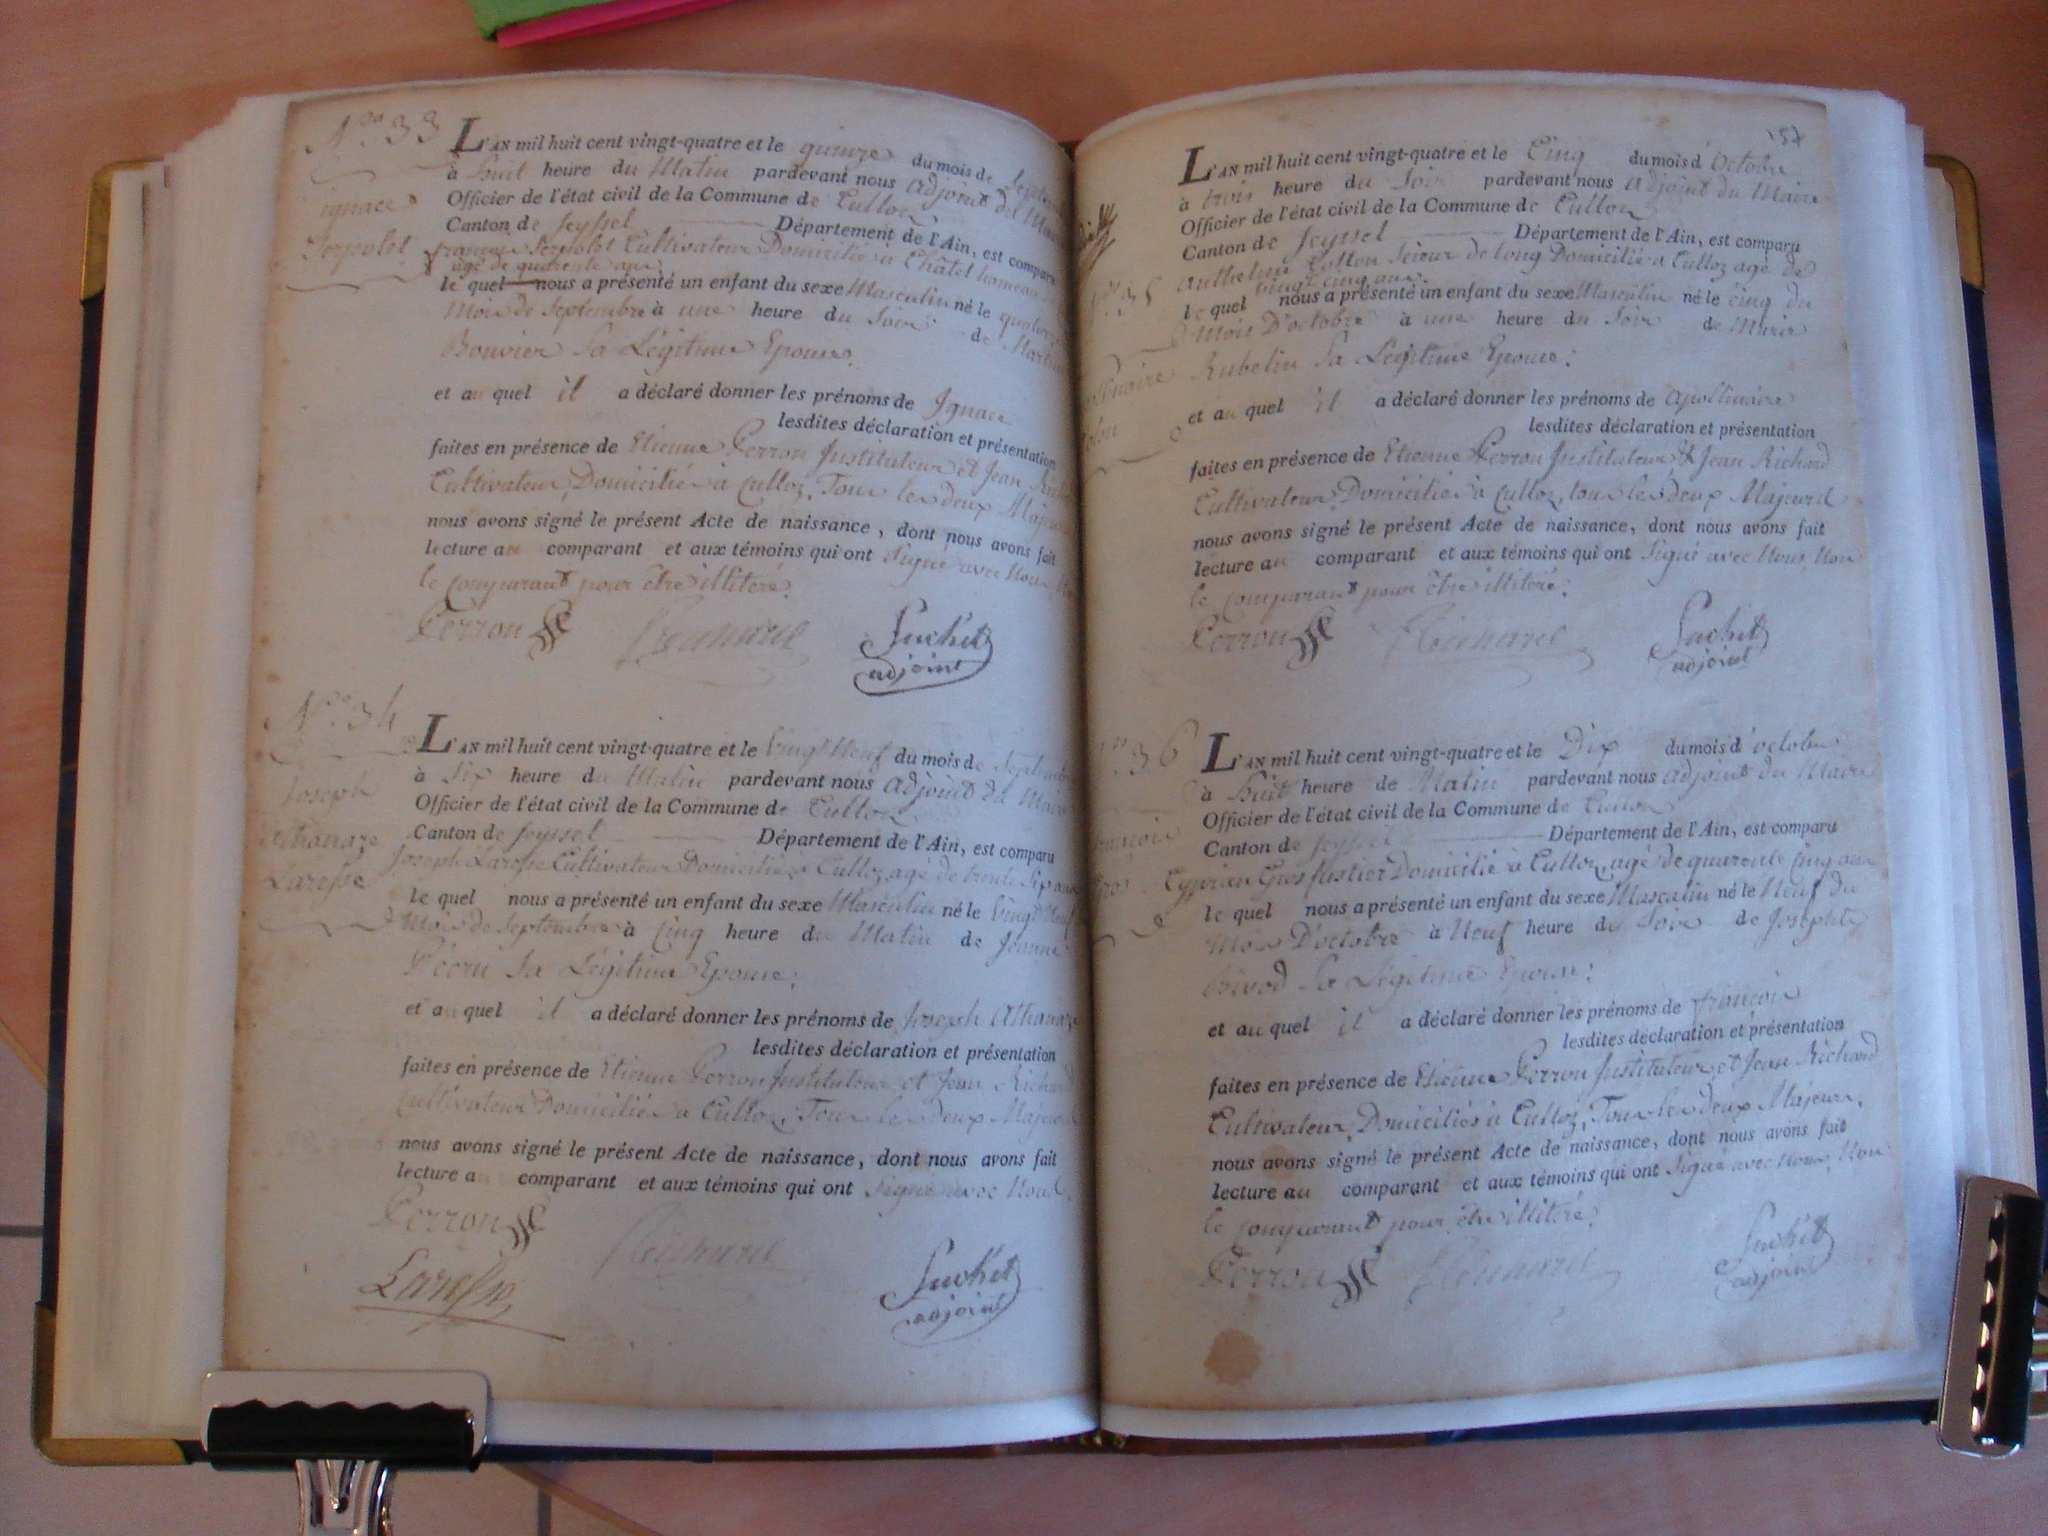 N.º 33
ignace
Serpolet
L'AN mil huit cent vingt-quatre et le quinze du mois de
à huit heure du Matin pardevant nous adjoint du
Officier de l'état civil de la Commune de Culloz
Canton de Seyssel Département de l'Ain, est comparu
françois Serpolet Cultivateur Domicilié à Châtel hameau
agé de quarente ans
le quel nous a présenté un enfant du sexe Masculin né le quatorze
Mois de Septembre à une heure du Soir de
Bouvier Sa Légitime Epouse;
et au quel il a déclaré donner les prénoms de Ignace
lesdites déclaration et présentation
faites en présence de Etienne Perron Instituteur et Jean
Cultivateur, Domiciliés à Culloz, Tous les deux
nous avons signé le présent Acte de naissance, dont nous avons fait
lecture au comparant et aux témoins qui ont Signé avec Nous
le comparant pour être illitéré.
Perron Richard Suchet
adjoint
N.º 34
Joseph
Athanaze
L'AN mil huit cent vingt-quatre et le Vingt Neuf du mois de
à Six heure du Matin pardevant nous adjoint du Maire
Officier de l'état civil de la Commune de Culloz
Canton de Seyssel Département de l'Ain, est comparu
Joseph Cultivateur Domicilié à Culloz, agé de trente Six ans
le quel nous a présenté un enfant du sexe Masculin né le Vingt Neuf
Mois de Septembre à Cinq heure du Matin de Jeanne
Sa Légitime Epouse;
et au quel il a déclaré donner les prénoms de Joseph Athanaze
lesdites déclaration et présentation
faites en présence de Etienne Perron Instituteur et Jean Richard
Cultivateur Domiciliés à Culloz, Tous les deux
nous avons signé le présent Acte de naissance, dont nous avons fait
lecture au comparant et aux témoins qui ont Signé avec Nous.
Perron Richard Suchet
adjoint
157
L'AN mil huit cent vingt-quatre et le Cinq du mois d'octobre
à trois heure du Soir pardevant nous adjoint du Maire
Officier de l'état civil de la Commune de Culloz
Canton de Seyssel Département de l'Ain, est comparu
Anthelme Scieur de long Domicilié à Culloz agé de
vingt cinq ans
le quel nous a présenté un enfant du sexe Masculin né le cinq du
Mois D'octobre à une heure du Soir de Marie
Rubelin Sa Légitime Epouse;
et au quel il a déclaré donner les prénoms de apollinaire
lesdites déclaration et présentation
faites en présence de Etienne Perron Instituteur & Jean Richard
Cultivateur, Domiciliés à Culloz, tous les deux Majeurs
nous avons signé le présent Acte de naissance, dont nous avons fait
lecture au comparant et aux témoins qui ont Signé avec Nous, Non
le comparant pour être illitéré.
Perron Richard Suchet
adjoint
36
françois
L'AN mil huit cent vingt-quatre et le Dix du mois d'octobre
à huit heure de Matin pardevant nous adjoint du Maire
Officier de l'état civil de la Commune de Culloz
Canton de Seyssel Département de l'Ain, est comparu
Cyprien Gros Domicilié à Culloz, agé de quarente cinq ans
le quel nous a présenté un enfant du sexe Masculin né le Neuf du
Mois D'octobre à Neuf heure du Soir de Josephte
Sa Légitime Epouse;
et au quel il a déclaré donner les prénoms de françois
lesdites déclaration et présentation
faites en présence de Etienne Perron Instituteur et Jean Richard
Cultivateur, Domiciliés à Culloz, Tous les deux Majeurs,
nous avons signé le présent Acte de naissance, dont nous avons fait
lecture au comparant et aux témoins qui ont Signé avec Nous, Non
le comparant pour être illitéré.
Perron Richard Suchet
adjoint